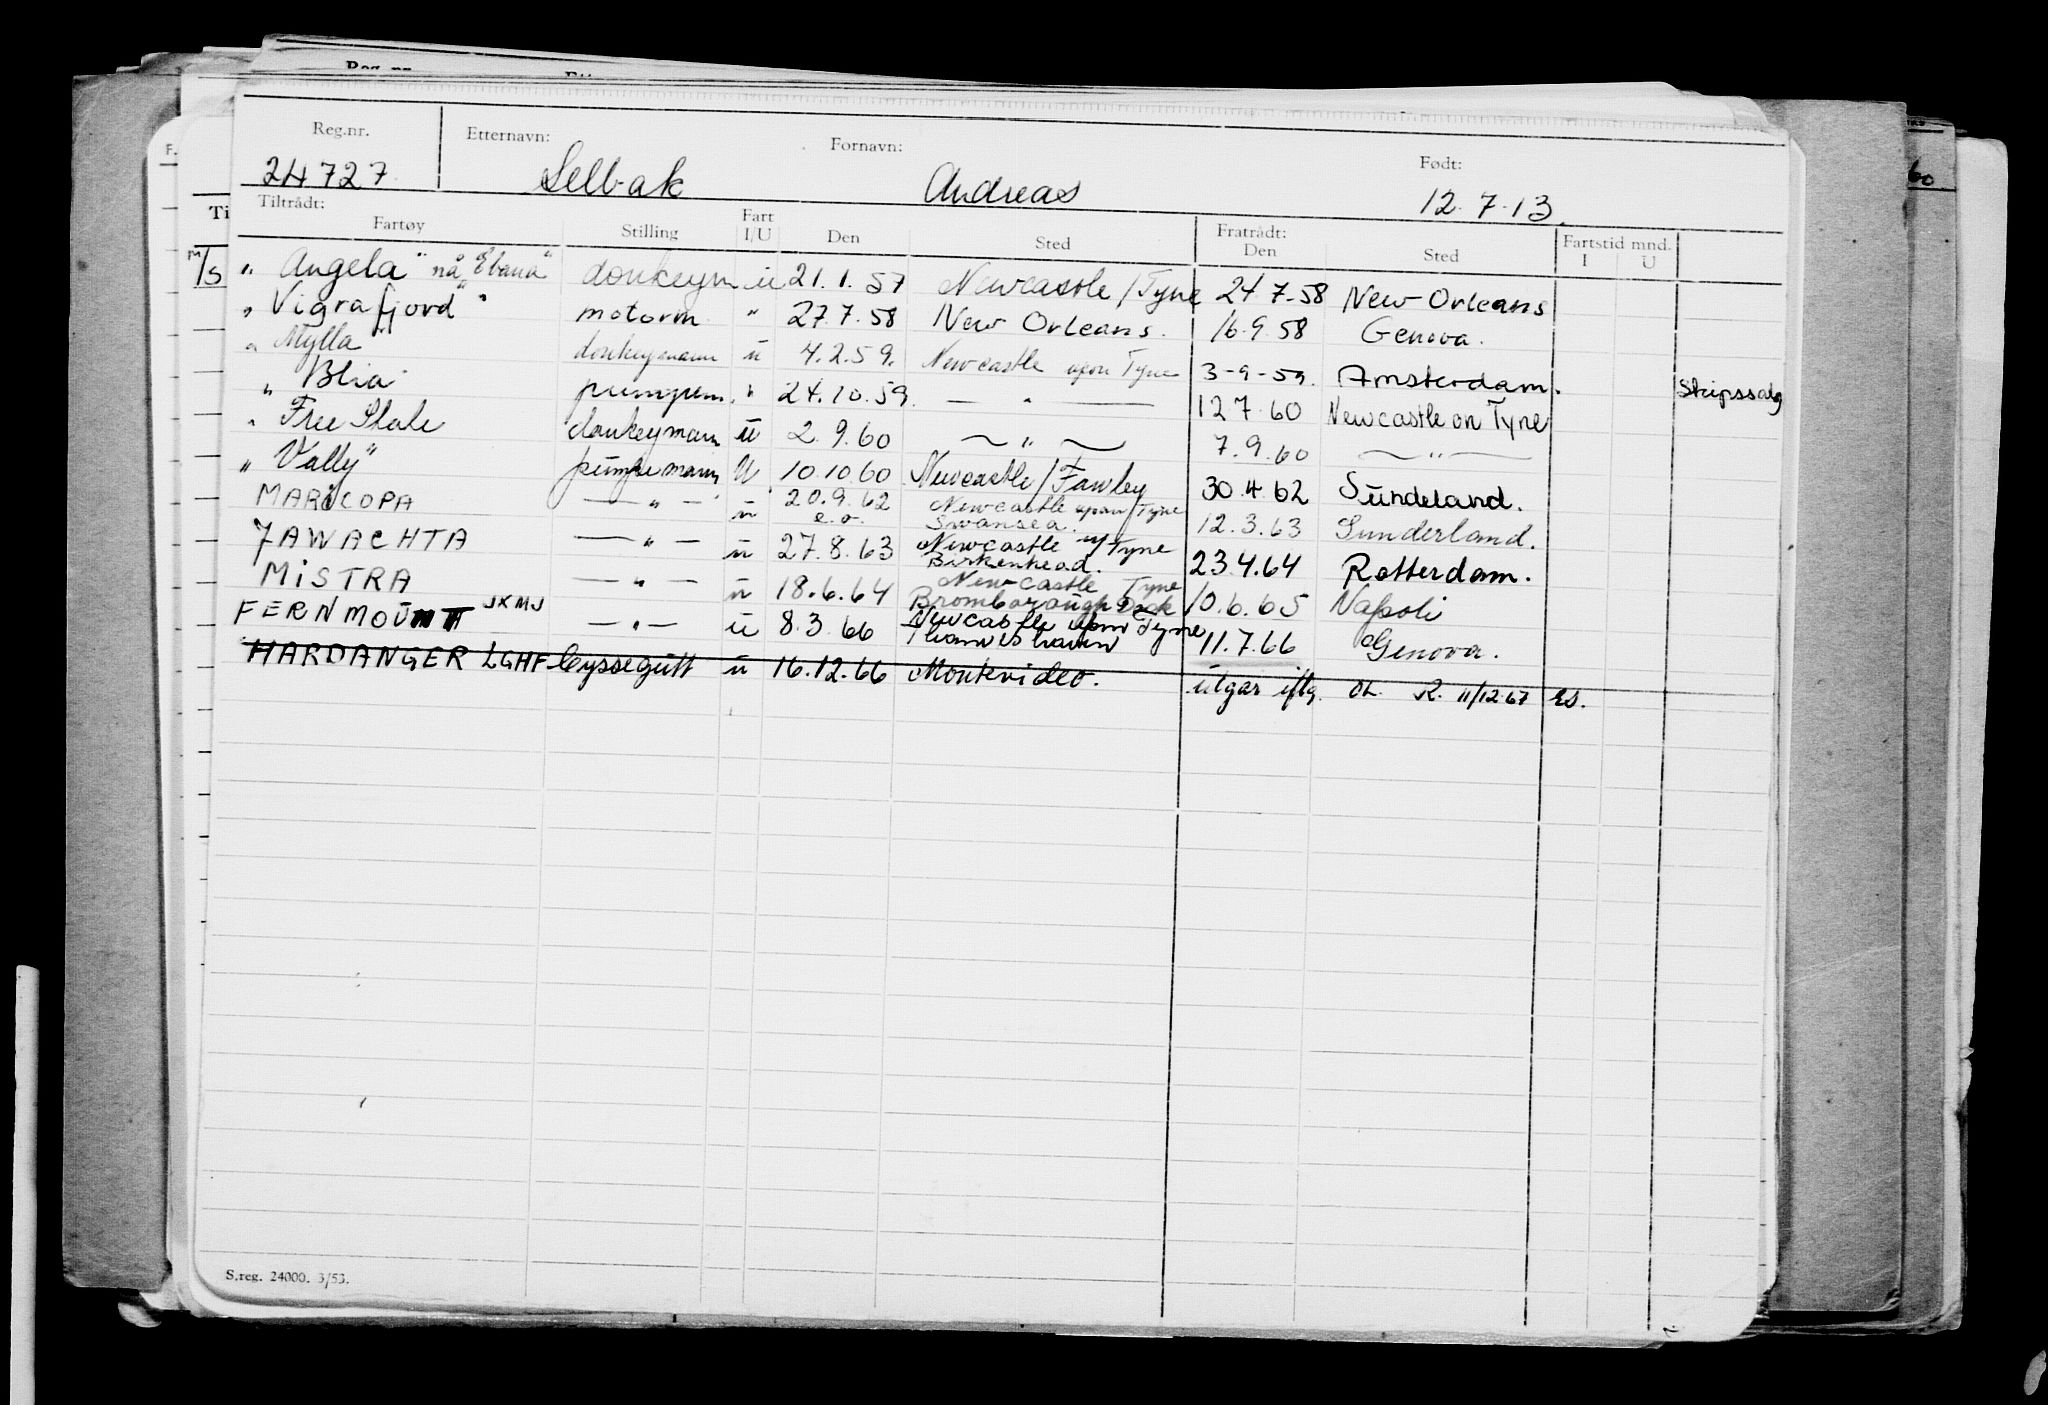 Reg.nr. Etternavn: Fornavn: Født:
24727 Selbak Andreas 12.7.13.
Tiltrådt: Fratrådt: Fartstid mnd.
Fartøy Stilling Fart I/U Den Sted Den Sted I U
M/S " Angela" nå "Elana" donkeym ü 21.1.57 Newcastle/Tyne 24.7-58 New-Orleans
" Vigrafjord " motorm " 27.7.58 New Orleans. 16.9.58 Genova.
" Mylla donkeymann ü 4.2.59. Newcastle upon Tyne 3-9-59. Amsterdam. Skipssalg
" Blia pumpem. " 24.10.59. — " — 12 7.60 Newcastle on Tyne
" Free State donkeymann ü 2.9.60 — " — 7.9.60 — " —
" Vally" pumpemann U 10.10.60 Newcastle/Fawley 30.4.62 Sündeland.
MARICOPA — " — ü 20.9.62 Newcastle upon/Tyne 12.3.63 Sunderland.
e.o. Swansea.
JAWACHTA — " — ü 27.8.63 Newcastle u/Tyne 23.4.64 Rotterdam.
Birkenhead.
MISTRA — " — ü 18.6.64 Newcastle Tyne 10.6.65 Napoli
Bromborough Dock
FERNMOUNT JXMJ — " — ü 8.3.66 Newcastle upon Tyne 11.7.66 Genova.
Thameshaven
HARDANGER LGHF byssegutt ü 16.12.66 Montevideo. utgår iflg. OL. R. 11/12.67 es.
S.reg. 24000. 3/53.